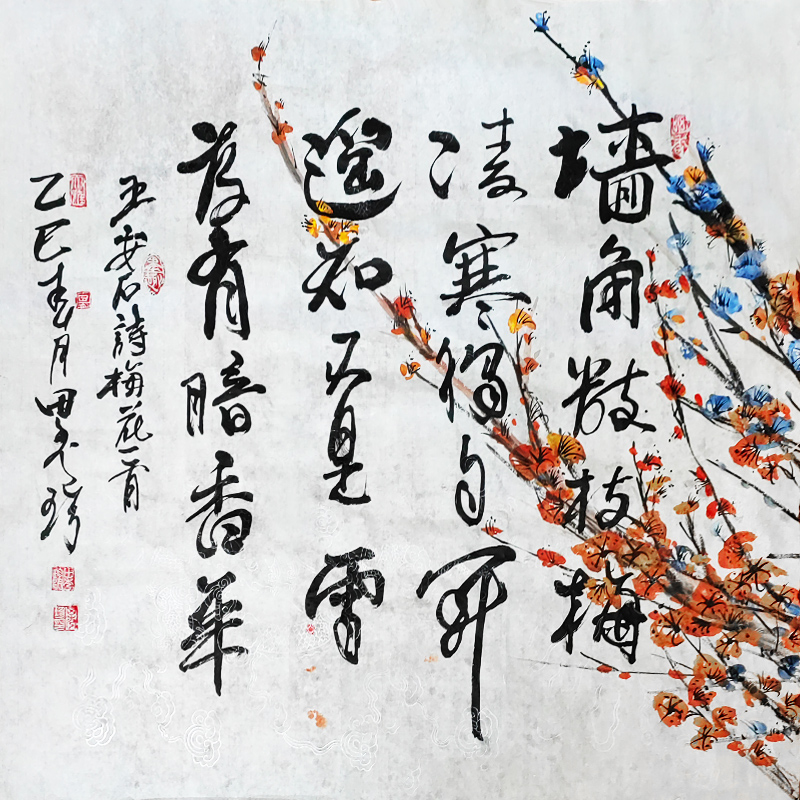 墙角数枝梅
凌寒得自开
遥知不是雪
為有暗香来
王安石詩梅花一首
乙巳春月田